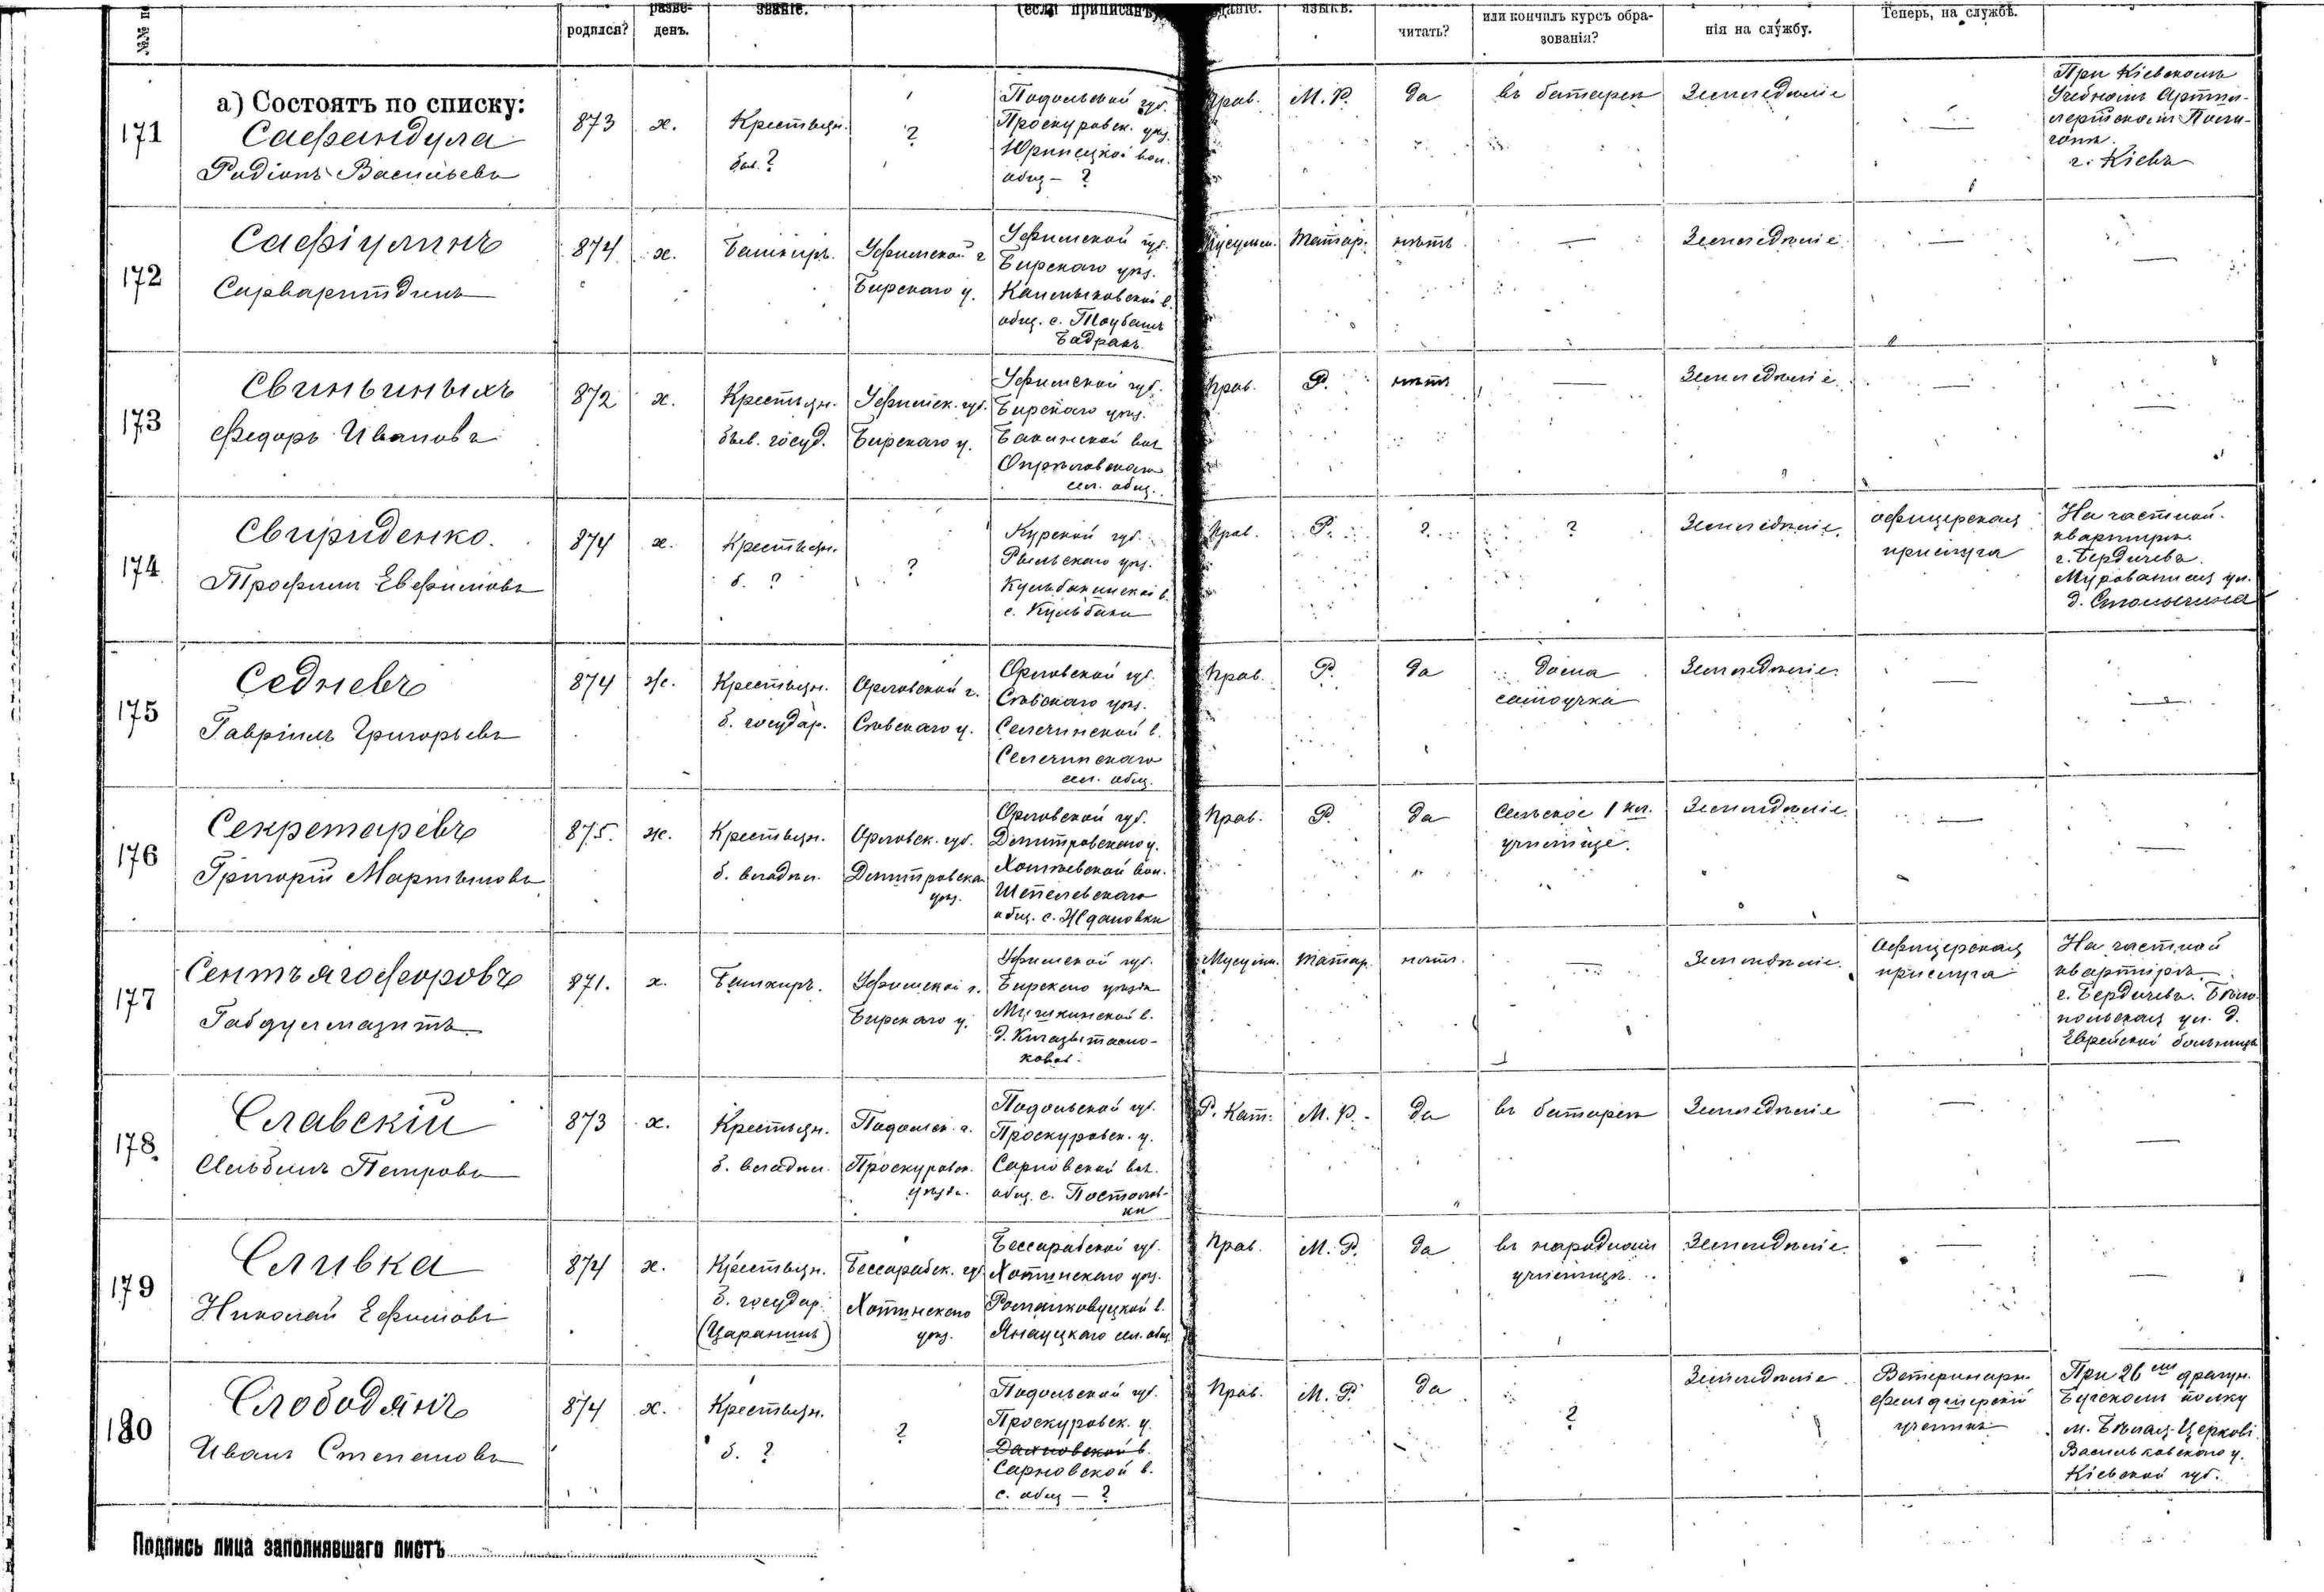 родился?
разве-
денъ.
званіе.
(если приписанъ
языкъ.
читать?
или кончилъ курсъ обра-
зованія?
нія на службу.
Теперь, на службѣ.
а) Состоятъ по списку:
171
Сафандула
Радіонъ Васильевъ
873
х.
Крестьян.
быв. ?
?
Подольской губ.
Проскуровск. уѣз.
Юринецкой вол.
общ — ?
Прав.
М. Р.
да
въ батареѣ
Земледѣліе
—
При Кіевскомъ
Учебномъ Артил-
лерійскомъ Поли-
гонѣ.
г. Кіевъ
172
Сафіулинъ
Сирваритдинъ
874
х.
Башкиръ.
Уфимской г
Бирскаго у.
Уфимской губ.
Бирскаго уѣз.
общ. с.
Бадракъ.
Мусульм.
Татар.
нѣтъ
—
Земледѣліе
—
—
173
Свиньиныхъ
Федоръ Ивановъ
872
х.
Крестьян.
быв. госуд.
Уфимск. губ.
Бирскаго у.
Уфимской губ.
Бирскаго уѣз.
Бакинской вол
сел. общ.
Прав.
Р.
нѣтъ
—
Земледѣліе
—
—
174
Свириденко.
Трофимъ Евфимовъ
874
х.
Крестьян.
б. ?
?
Курской губ.
Рыльскаго уѣз.
Кульбакинской в.
с. Кульбаки
Прав.
Р.
?
?
Земледѣліе.
офицерская
прислуга
На частной
квартирѣ.
г. Бердичевъ.
Мурованная ул.
д. Стольчина
175
Седневъ
Гавріилъ Григорьевъ
874
ж.
Крестьян.
б. государ.
Орловской г.
Сѣвскаго у.
Орловской губ.
Сѣвскаго уѣз.
Селечинской в.
Селечинскаго
сел. общ.
Прав.
Р.
да
дома
самоучка
Земледѣліе.
—
—
176
Секретаревъ
Григорій Мартыновъ
875.
ж.
Крестьян.
б. владѣл.
Орловск. губ.
Дмитровска
уѣз.
Орловской губ.
Дмитровскаго у.
Хотѣевской вол.
Шепелевскаго
общ. с. Ждановки
Прав.
Р.
да
Сельское 1 кл.
училище.
Земледѣліе.
—
—
177
Сентъягофоровъ
Габдулмазитъ
871.
х.
Башкиръ.
Уфимской г.
Бирскаго у.
Уфимской губ.
Бирскаго уѣзда
Мишкинской в.
Мусульм.
Татар.
нѣтъ.
—
Земледѣліе.
Офицерская
прислуга
На частной
квартирѣ
г. Бердичевъ. Бѣло-
польская ул. д.
Еврейской больницы
178.
Славскій
Альбинъ Петровъ
873
х.
Крестьян.
б. владѣл.
Подольск. г.
Проскуровск.
уѣзда.
Подольской губ.
Проскуровск. у.
Сарновской вол.
общ. с. Постолов-
ки
Р. Кат.
М. Р.
да
въ батареѣ
Земледѣліе
—
—
179
Сливка
Николай Ефимовъ
874
х.
Крестьян.
б. государ.
(Царанинъ)
Бессарабск. губ
Хотинскаго
уѣз.
Бессарабской губ.
Хотинскаго уѣз.
Романковуцкой в.
Янауцкаго сел. общ.
Прав.
М. Р.
да
въ народномъ
училищѣ.
Земледѣліе.
—
—
180
Слободянъ
Иванъ Степановъ
874
х.
Крестьян.
б. ?
?
Подольской губ.
Проскуровск. у.
Сарновской в.
с. общ — ?
Прав.
М. Р.
да
?
Земледѣліе
Ветеринарн.
фельдшерскій
ученикъ
При 26мъ драгун.
Бугскомъ полку
м. Бѣлая-Церковь
Васильковскаго у.
Кіевской губ.
Подпись лица заполнявшаго листъ